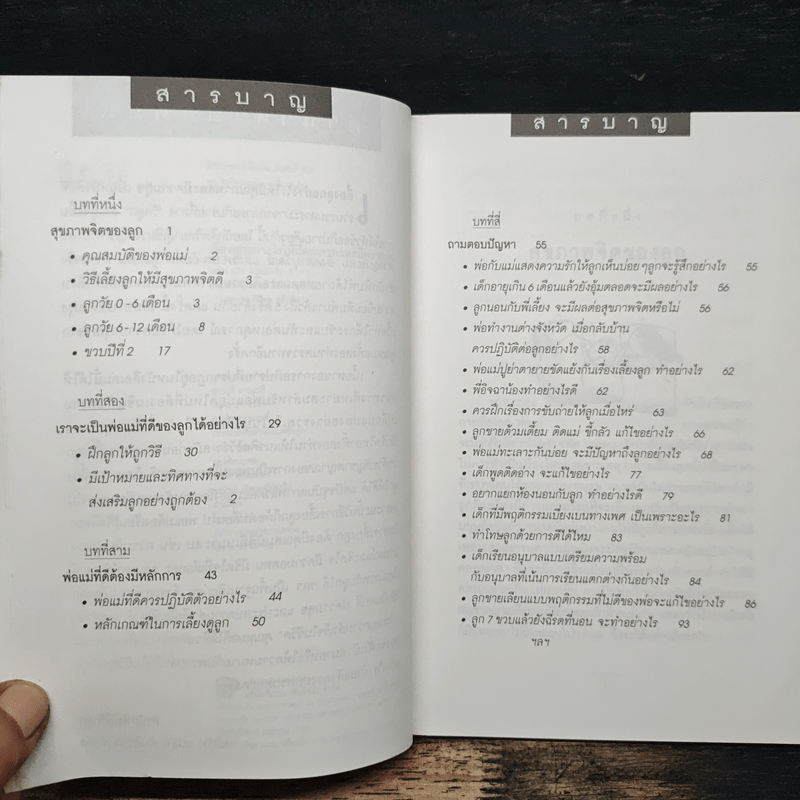 สารบาญ
บทที่หนึ่ง
สุขภาพจิตของลูก 1
• คุณสมบัติของพ่อแม่ 2
• วิธีเลี้ยงลูกให้มีสุขภาพจิตดี 3
• ลูกวัย 0 - 6 เดือน 3
• ลูกวัย 6 - 12 เดือน 8
• ขวบปีที่ 2 17
บทที่สอง
เราจะเป็นพ่อแม่ที่ดีของลูกได้อย่างไร 29
• ฝึกลูกให้ถูกวิธี 30
• มีเป้าหมายและทิศทางที่จะ
ส่งเสริมลูกอย่างถูกต้อง 2
บทที่สาม
พ่อแม่ที่ดีต้องมีหลักการ 43
• พ่อแม่ที่ดีควรปฏิบัติตัวอย่างไร 44
• หลักเกณฑ์ในการเลี้ยงดูลูก 50
สารบาญ
บทที่สี่
ถามตอบปัญหา 55
• พ่อกับแม่แสดงความรักให้ลูกเห็นบ่อยๆลูกจะรู้สึกอย่างไร 55
• เด็กอายุเกิน 6 เดือนแล้วยังอุ้มตลอดจะมีผลอย่างไร 56
• ลูกนอนกับพี่เลี้ยง จะมีผลต่อสุขภาพจิตหรือไม่ 56
• พ่อทำงานต่างจังหวัด เมื่อกลับบ้าน
ควรปฏิบัติต่อลูกอย่างไร 58
• พ่อแม่ปู่ย่าตายายขัดแย้งกันเรื่องเลี้ยงลูก ทำอย่างไร 62
• พี่อิจฉาน้องทำอย่างไรดี 62
• ควรฝึกเรื่องการขับถ่ายให้ลูกเมื่อไหร่ 63
• ลูกชายต้วมเตี้ยม ติดแม่ ขี้กลัว แก้ไขอย่างไร 66
• พ่อแม่ทะเลาะกันบ่อย จะมีปัญหาถึงลูกอย่างไร 68
• เด็กพูดติดอ่าง จะแก้ไขอย่างไร 77
• อยากแยกห้องนอนกับลูก ทำอย่างไรดี 79
• เด็กที่มีพฤติกรรมเบี่ยงเบนทางเพศ เป็นเพราะอะไร 81
• ทำโทษลูกด้วยการตีได้ไหม 83
• เด็กเรียนอนุบาลแบบเตรียมความพร้อม
กับอนุบาลที่เน้นการเรียนแตกต่างกันอย่างไร 84
• ลูกชายเลียนแบบพฤติกรรมที่ไม่ดีของพ่อจะแก้ไขอย่างไร 86
• ลูก 7 ขวบแล้วยังฉี่รดที่นอน จะทำอย่างไร 93
ฯลฯ